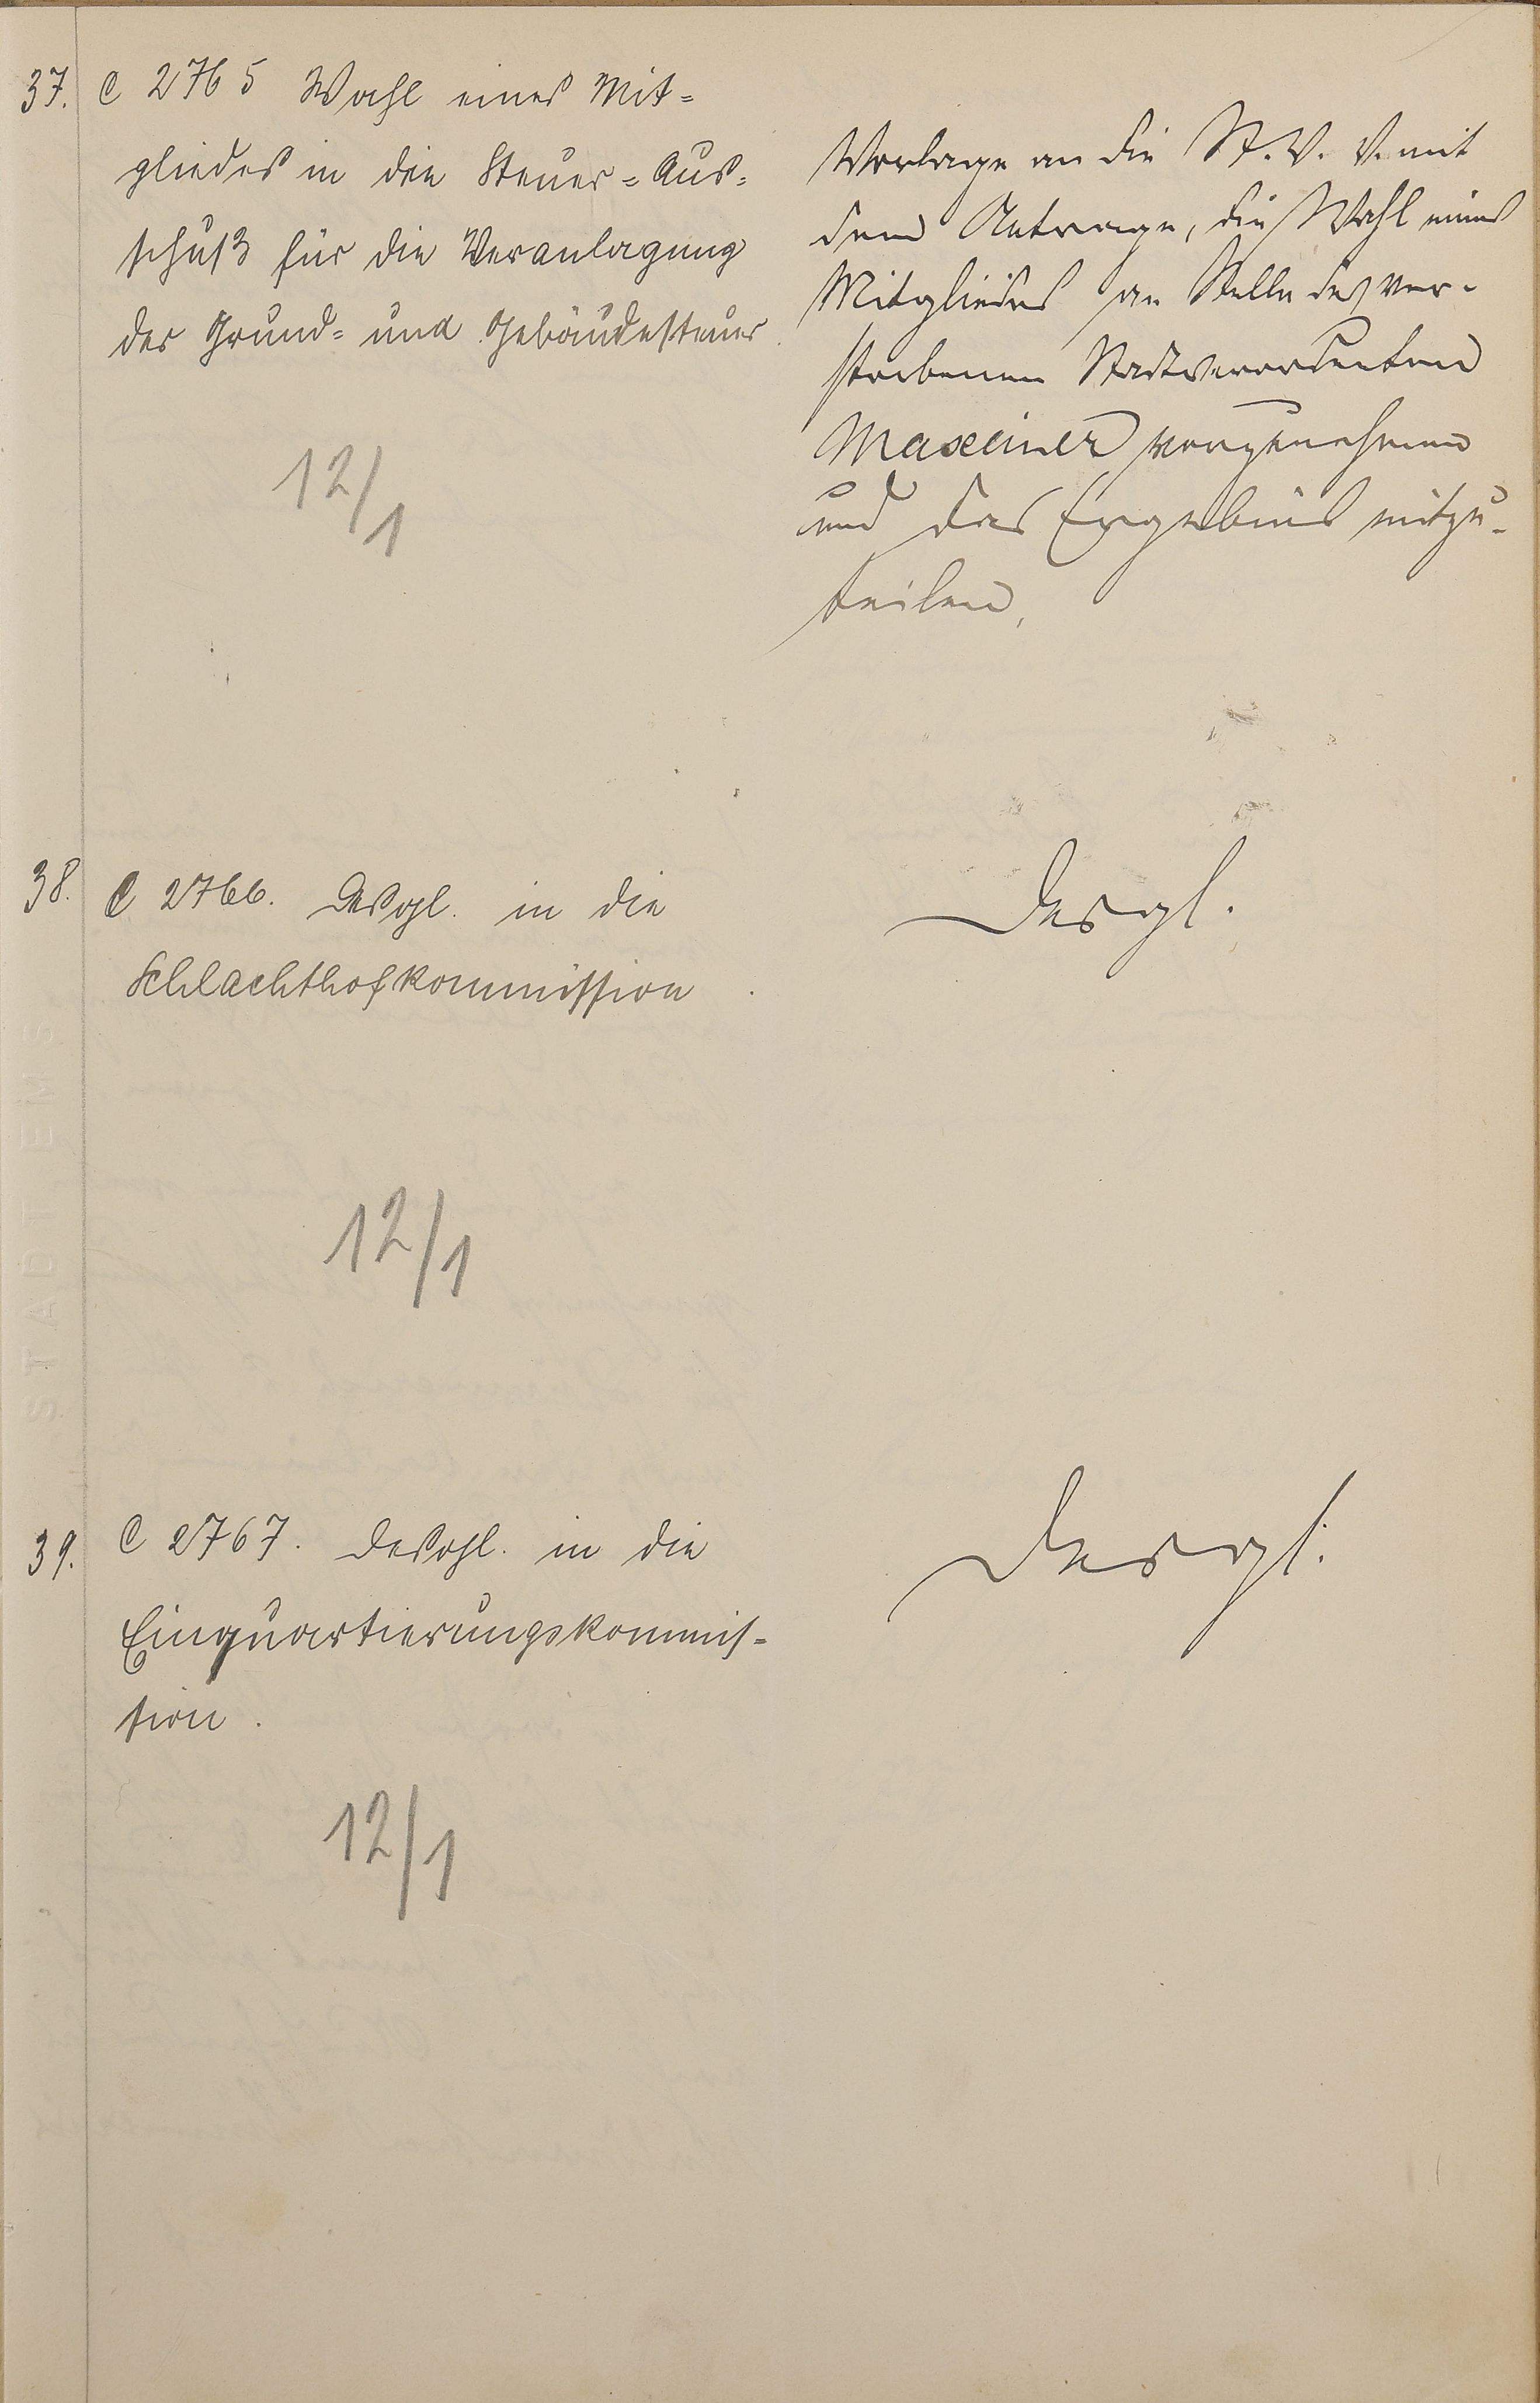 37. C 2765 Wahl eines Mit=
gliedes in den Steuer=Aus=
schuß für die Veranlagung
der Grund= und Gebäudesteuer.
12/1
Vorlage an die St. V. V. mit
dem Antrage, die Wahl eines
Mitgliedes an Stelle des ver-
storbenen Stadtverordneten
Maxeiner vorzunehmen
und das Ergebnis mitzu-
teilen.
38. C 2766. Desgl. in die
Schlachthofkommission
12/1
Desgl.
39. C 2767. Desgl. in die
Einquartierungskommis=
sion.
12/1
Desgl.
STADT EMS